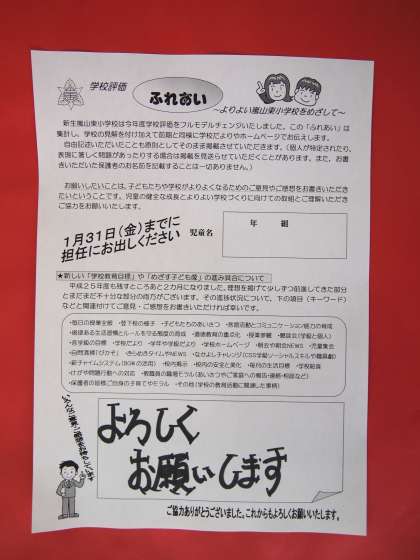 学校評価
ふれあい
～よりよい嵐山東小学校をめざして～
新生嵐山東小学校は今年度学校評価をフルモデルチェンジいたしました。この「ふれあい」は
集計し、学校の見解を付け加えて前期と同様に学校だよりやホームページでお伝えします。
自由記述いただいたことも原則としてそのまま掲載させていただきます。(個人が特定されたり、
表現に著しく問題があったりする場合は掲載を見送らせていただくことがあります。また、お書
きいただいた保護者のお名前を記載することは一切ありません。)
お願いしたいことは、子どもたちや学校がよりよくなるためのご意見やご感想をお書きいただき
たいということです。児童の健全な成長とよりよい学校づくりに向けての取組とご理解いただき
ご協力をお願いします。
1月31日(金)までに
担任にお出しください
年 組
児童名
★新しい「学校教育目標」や「めざす子ども像」の進み具合について
平成25年度も残すところあと2カ月になりました。理想を掲げて少しずつ前進してきた部分
とまだまだ不十分な部分の両方がございます。その進捗状況について、下の項目(キーワード)
などと関連付けてご意見・ご感想をお書きいただければ幸いです。
・毎日の授業全般 ・登下校の様子 ・子どもたちのあいさつ ・言語活動とコミュニケーション能力の育成
・規律ある生活習慣とルールを守る態度の育成 ・道徳教育の重点化 ・授業参観 ・懇談会(学級と個人)
・各学級の目標 ・学校だより ・学年や学級だより ・学校ホームページ ・朝会や朝会NEWS ・児童集会
・きらめきタイムやNEWS ・なかよしチャレンジ(CSS学級ソーシャルスキルや職員劇)
・校内掲示 ・校内の安全と美化 ・毎月の生活目標 ・学校給食
・けがや問題行動への対応 ・教職員の職場モラル(あいさつやご家庭への報告・連絡・相談など)
・保護者の皆様ご自身の子育てやモラル ・その他(学校の教育活動に関連した事柄)
よろしく
お願いします
ご協力ありがとうございました。これからもよろしくお願いいたします。